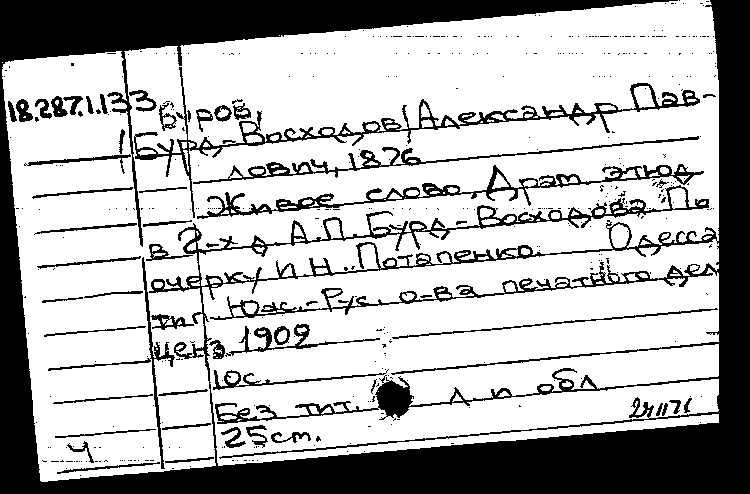 18.287.1.133
Буров,
/Бурд-Восходов/Александр Пав-
лович, 1876
Живое слово, Драм. этюд
в 2-х д. А.П. Бурд-Восходова. По
очерку И.Н. Потапенко. Одесса
тип Юж.-Рус. о-ва печатного дел
ценз 1909
10с.
Без тит. л и обл
25cm.
Ч